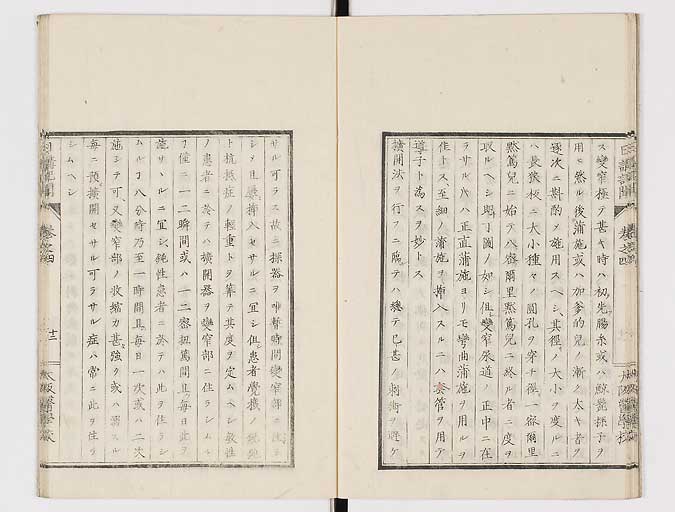 ス變窄極テ甚キ時ハ初先腸糸或ハ鯨髭探子ヲ
用ヒ然ル後蒲施或ハ加爹的兒ノ漸ク太キ者ヲ
逐次ニ斟酌メ施用スヘシ其徑ノ大小ヲ度ルニ
ハ長狹板ニ大小種々ノ圓孔ヲ穿チ徑一密爾里
黙篤兒ニ始テ八密爾里黙篤兒ニ終ル者ニ度ヲ
取ルヘシ圖ノ如シ但變窄尿道ノ正中ニ在
ラサルハ正直蒲施ヨリモ彎曲蒲施ヲ用ルヲ
佳トス至細ノ蒲施ヲ挿入スルニハ套管ヲ用テ
導子ト為スヲ妙トス
擴開法ヲ行フニ臨テハ總テ已甚ノ刺衝ヲ避ケ
サル可ラス故ニ探器ヲ暫時間變窄部ニ
シメ且挿入セサルニ宜シ但患者覺機ノ
ト抗抵症ノ輕重トヲ算テ其度ヲ定ムヘシ敏性
ノ患者ニ於テハ擴開器ヲ變窄部ニ住ラシムル
丁僅ニ一二瞬間或ハ一二密扭篤間且毎日此ヲ
施サルニ宜シ鈍性患者ニ於テハ此ヲ住ラシ
ムル丁八分時乃至一時間且毎日一次或ハ二次
施シテ可又變窄部ノ收縮力甚強ク或ハ需スル
毎ニ預擴開セサル可ラサル症ハ常ニ此ヲ住ラ
シムヘシ
日講記聞
卷之四
十二
大阪醫學校